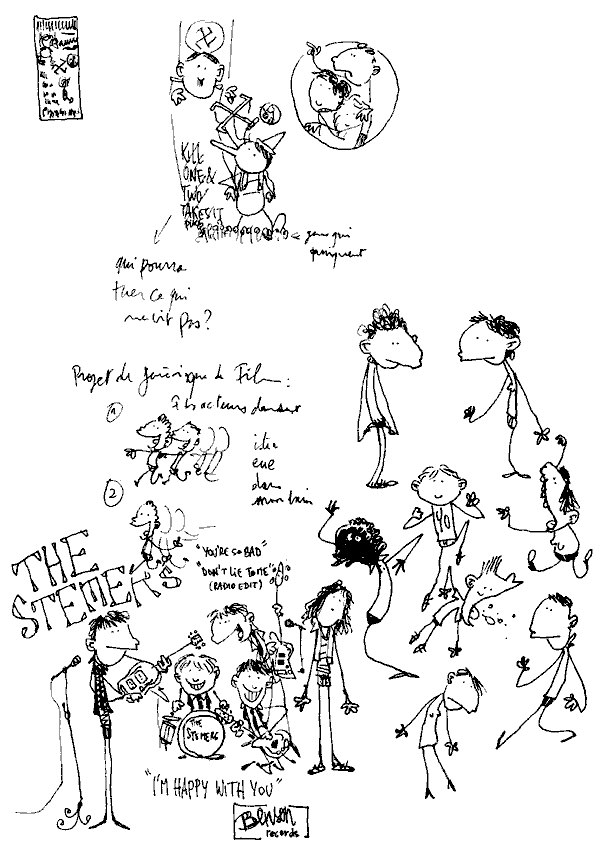 KILL
ONE &
TWO
TAKES IT
gens qui
qui pourra
tuer ce qui
ne vit pas?
Projet de générique de Film:
les acteurs dansent
1
idée
eue
dans
mon bain
2
THE
STEMERS
"YOU'RE SO BAD"
"DON'T LIE TO ME"
(RADIO EDIT)
YO
THE
STEMERS
"I'M HAPPY WITH YOU"
BENSON
records